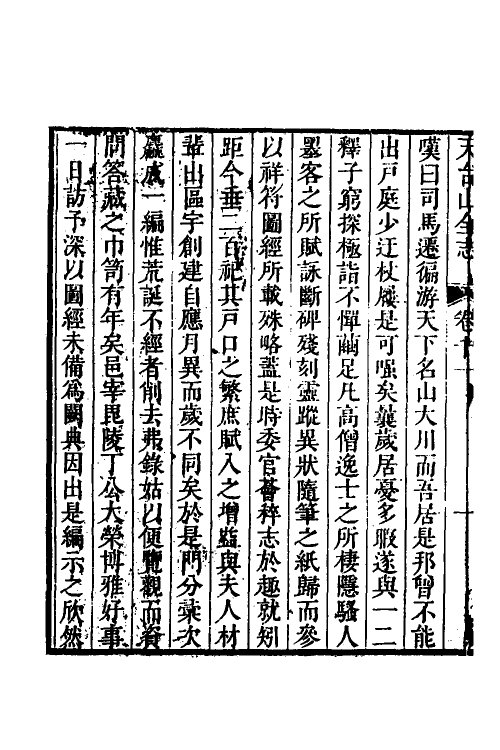 天台山全志 卷十
嘆曰司馬遷徧游天下名山大川而吾居是邦曾不能
出戸庭少迂杖屨是可强矣曩歲居憂多暇遂與一二
釋子窮探極詣不憚繭足凡高僧逸士之所棲隱騷人
墨客之所賦詠斷碑殘刻靈蹤異狀隨筆之紙歸而參
以祥符圖經所載殊略蓋是時委官薈稡志於趣就矧
距今垂二百祀其戸口之繁庶賦入之增益與夫人材
輩出區宇創建自應月異而歲不同矣於是門分彙次
裒成一編惟荒誕不經者削去弗錄姑以便覽觀而資
問答藏之巾笥有年矣邑宰毘陵丁公大榮博雅好事
一日訪予深以圖經未備爲闕典因出是編示之欣然